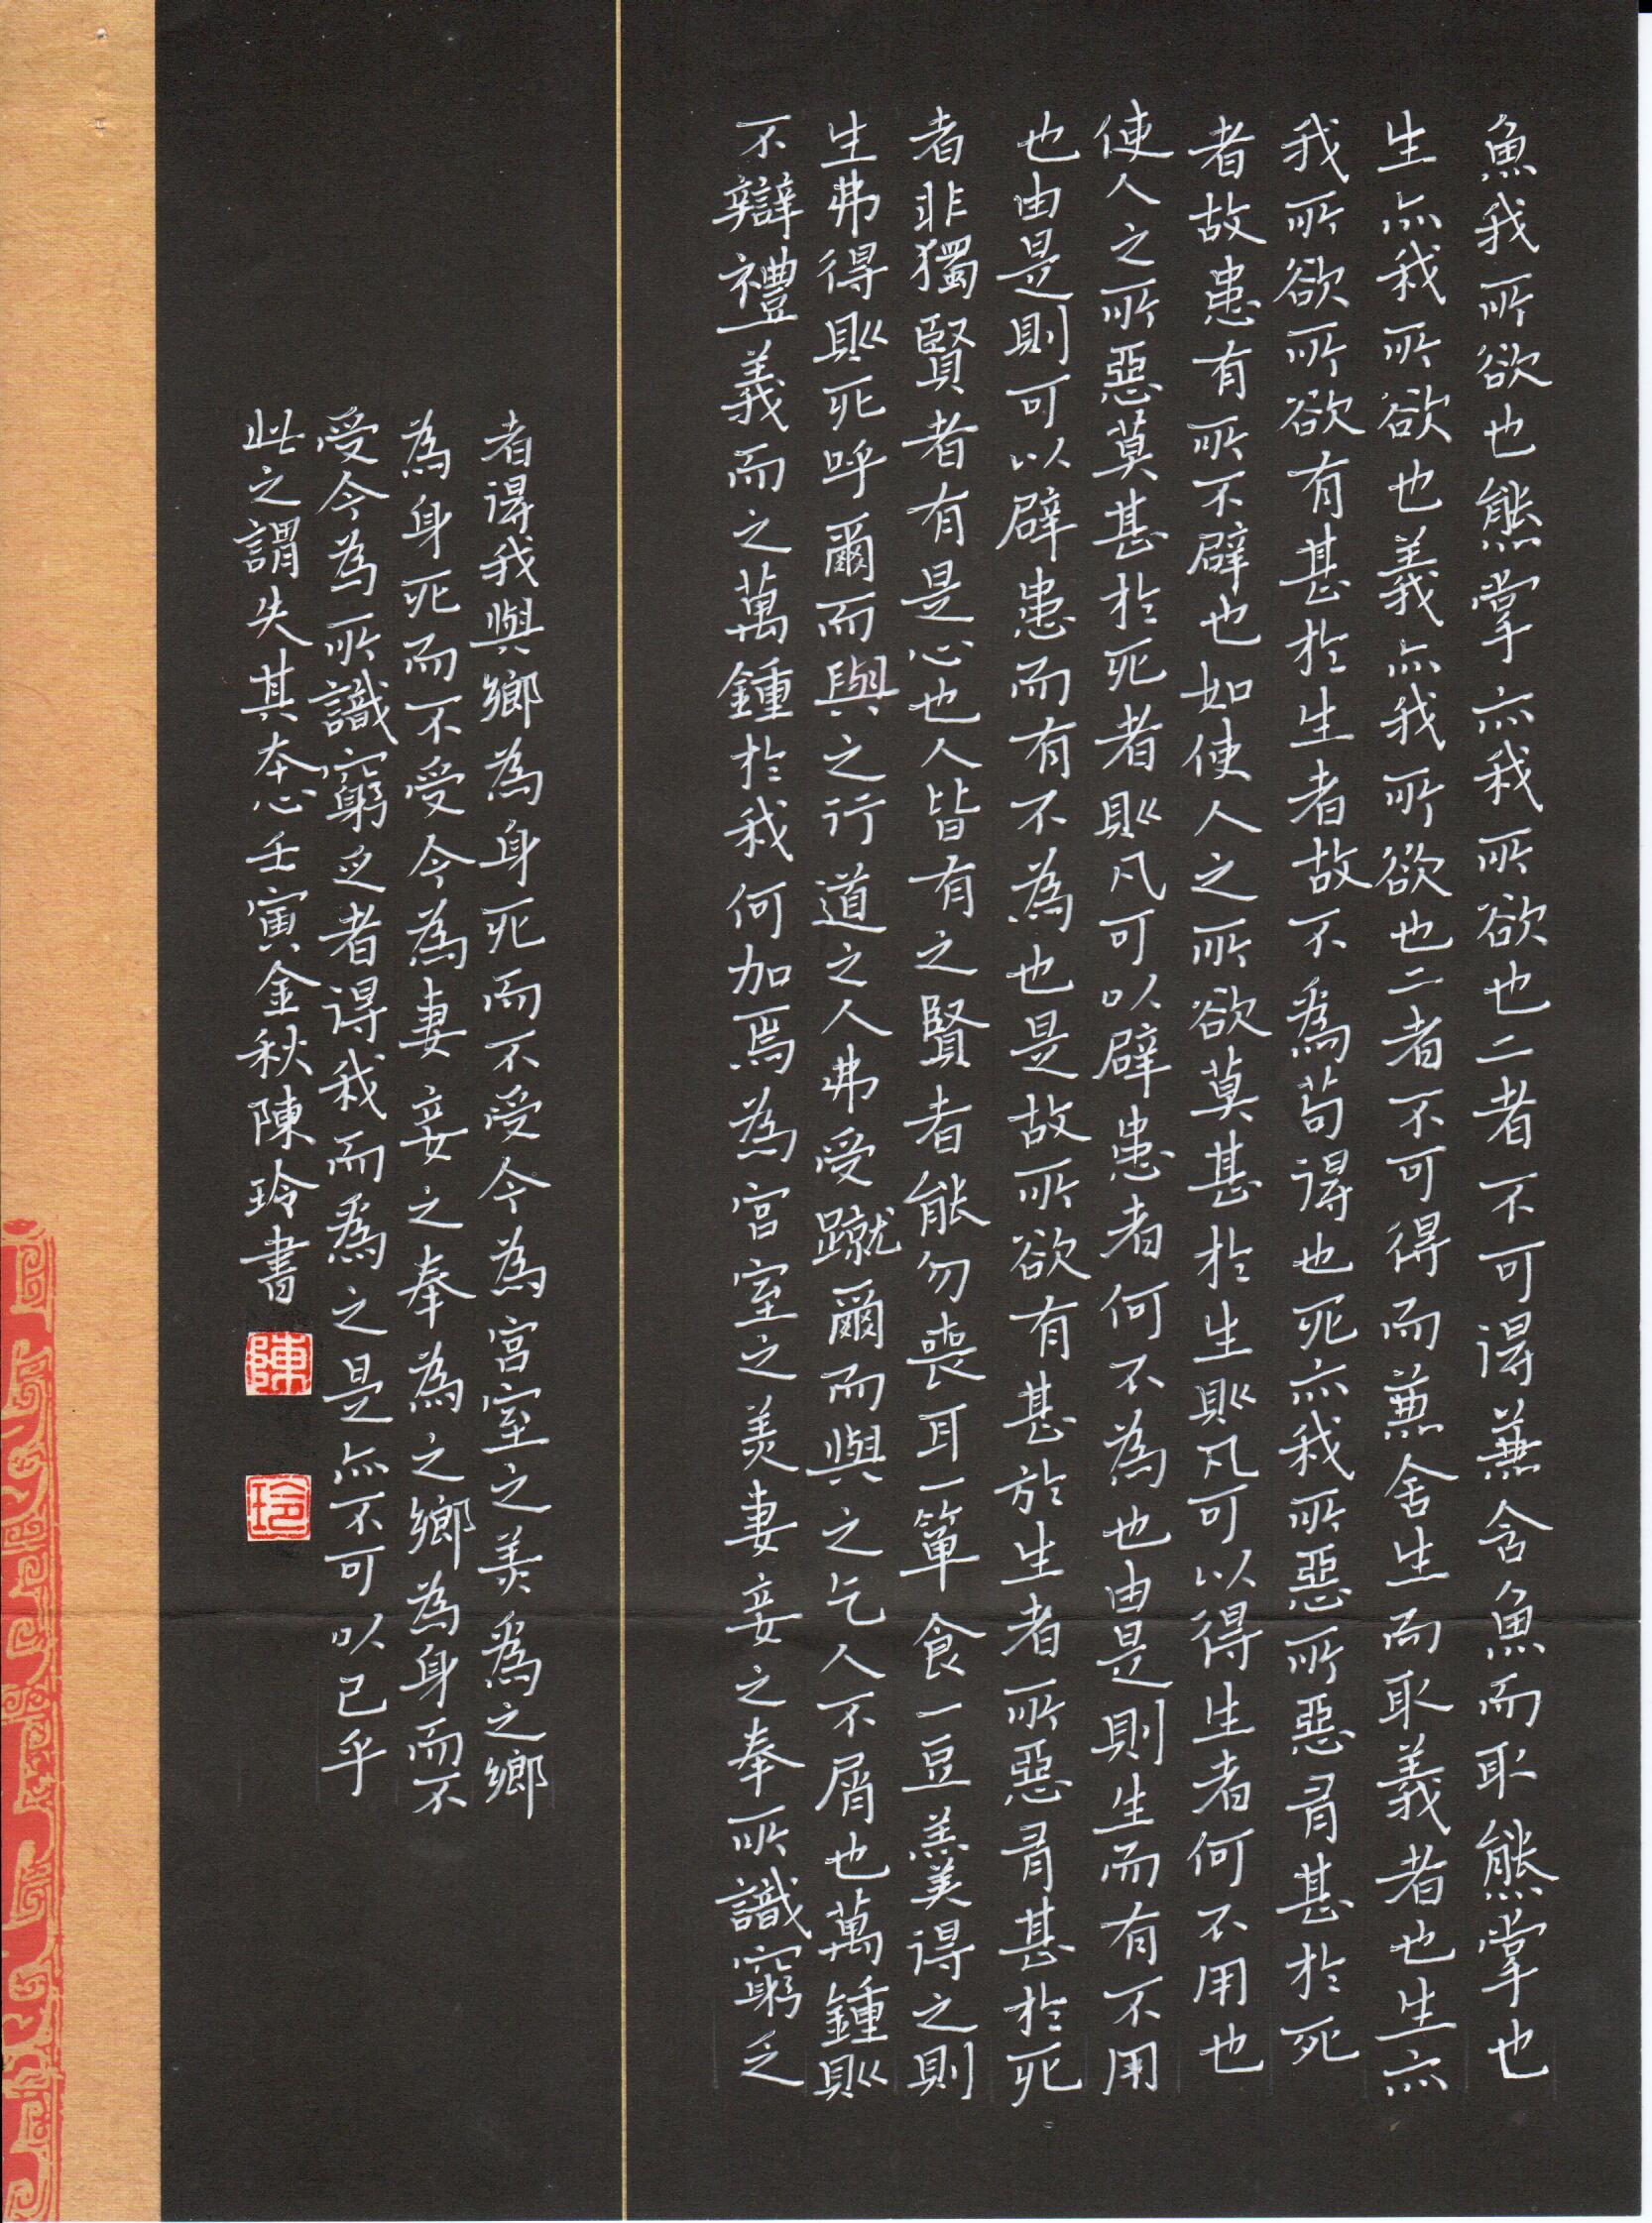 魚我所欲也熊掌亦我所欲也二者不可得兼舍魚而取熊掌也
生亦我所欲也義亦我所欲也二者不可得而兼舍生而取義者也生亦
我所欲所欲有甚於生者故不為苟得也死亦我所惡所惡有甚於死
者故患有所不辟也如使人之所欲莫甚於生則凡可以得生者何不用也
使人之所惡莫甚於死者則凡可以辟患者何不為也由是則生而有不用
也由是則可以辟患而有不為也是故所欲有甚於生者所惡有甚於死
者非獨賢者有是心也人皆有之賢者能勿喪耳一簞食一豆羹得之則
生弗得則死呼爾而與之行道之人弗受蹴爾而與之乞人不屑也萬鍾則
不辯禮義而之萬鍾於我何加焉為宮室之美妻妾之奉所識窮乏
者得我與鄉為身死而不受今為宮室之美為之鄉
為身死而不受今為妻妾之奉為之鄉為身而不
受今為所識窮乏者得我而為之是亦不可以已乎
此之謂失其本心壬寅金秋陳玲書
陳
玲